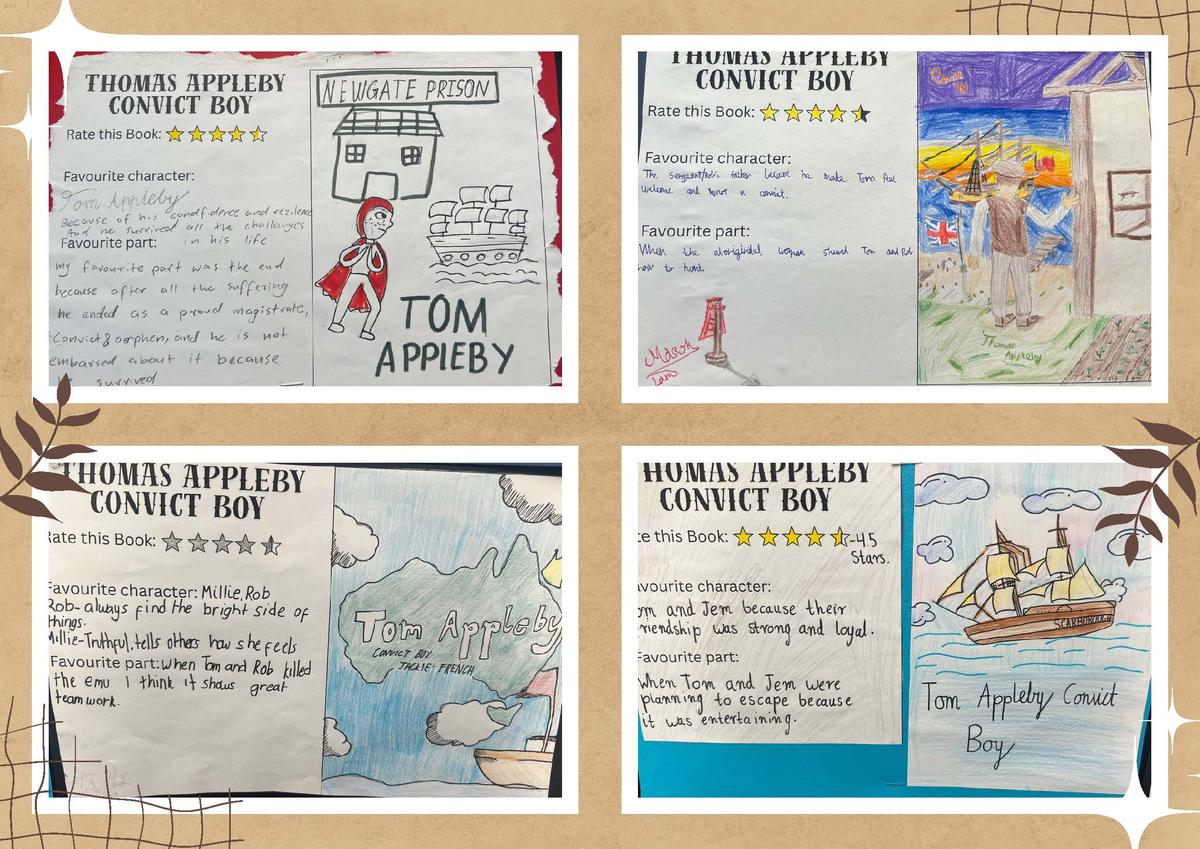 THOMAS APPLEBY
CONVICT BOY
Rate this Book:
Favourite character:
Tom Appleby
Because of his condfidence and rezilence
And he survived all the challanges
in his life
Favourite part:
my favourite part was the end
because after all the suffering
he ended as a proud magistrate,
Convict & oorphen, and he is not
embarsed about it because
survived
NEWGATE PRISON
TOM
APPLEBY
THOMAS APPLEBY
CONVICT BOY
Rate this Book:
Favourite character:
The sergeant/Rob's father because he made Tom feel
welcome and not a convict.
Favourite part:
When the aboriginal woman showed Tom and Rob
how to hunt.
Mason
Thomas
Appleby
THOMAS APPLEBY
CONVICT BOY
Rate this Book:
Favourite character: Millie, Rob
Rob- always find the bright side of
things.
Millie-Truthful, tells others how she feels
Favourite part: When Tom and Rob killed
the emu I think it shows great
team work.
Tom Appleby
CONVICT BOY
JACKIE FRENCH
THOMAS APPLEBY
CONVICT BOY
te this Book:
-4.5
Stars.
avourite character:
om and Jem because their
riendship was strong and loyal.
Favourite part:
When Tom and Jem were
planning to escape because
it was entertaining.
SCARBOROUGH
Tom Appleby Convict
Boy